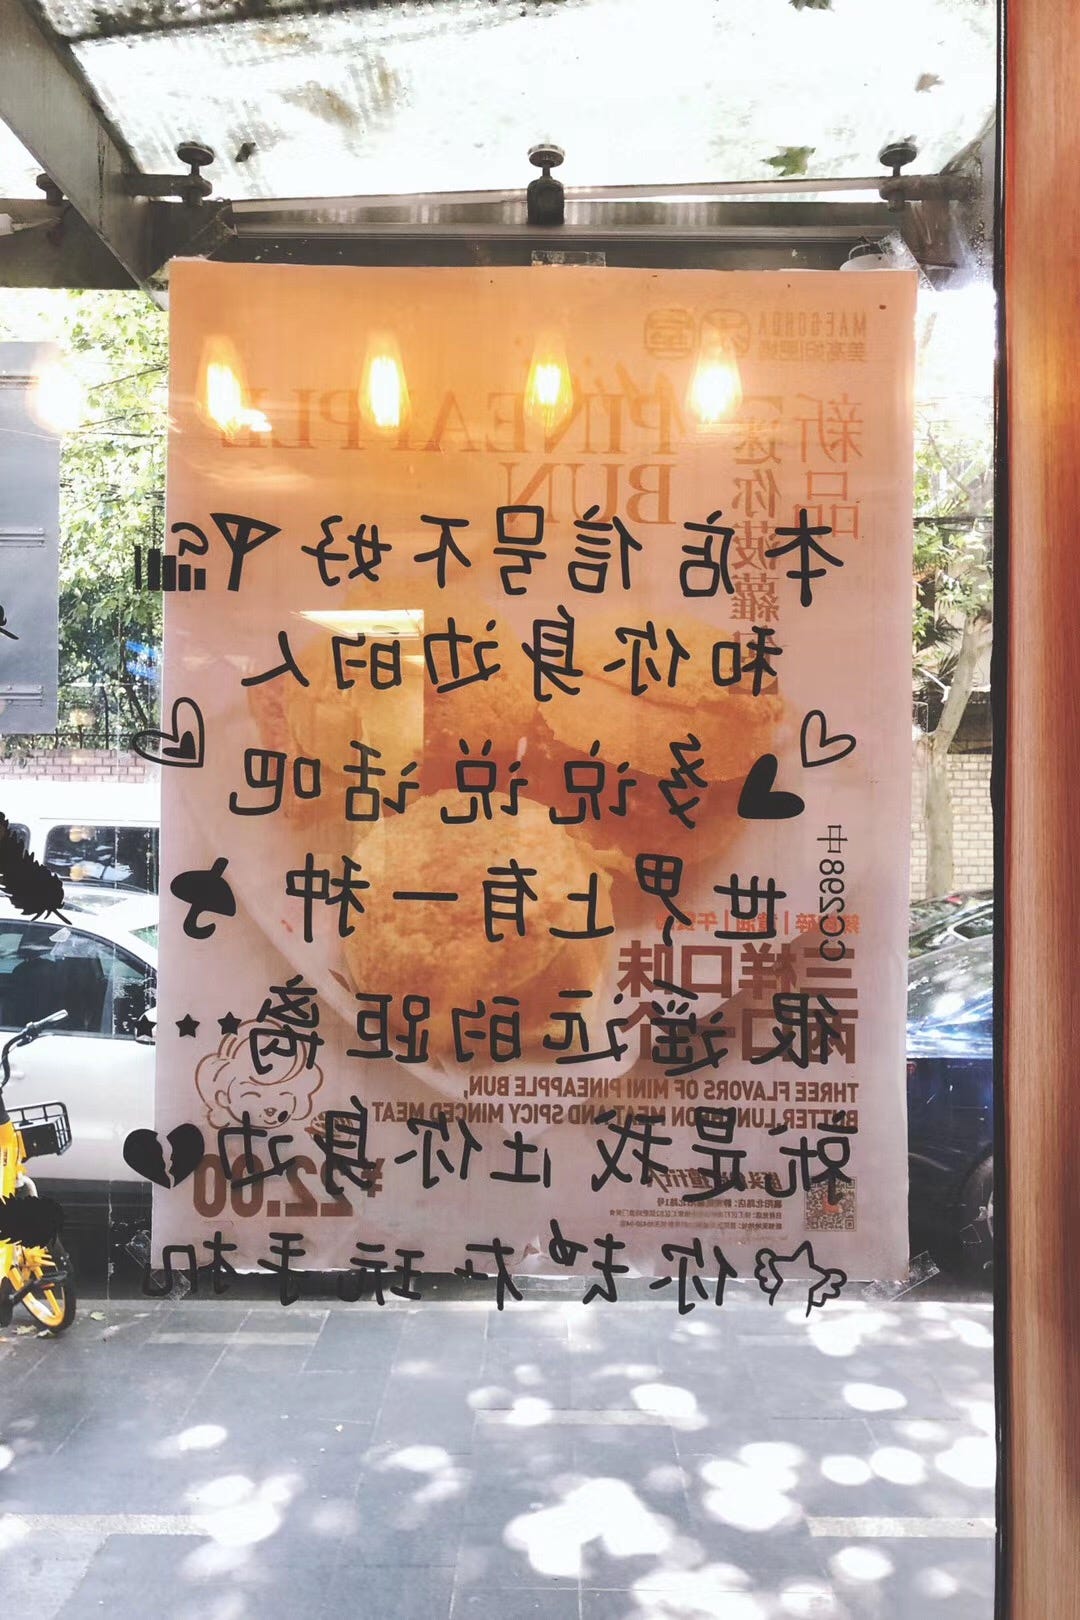 本店信号不好
和你身边的人
多说说话吧
世界上有一种
很遥远的距离
就是我在你身边
你却在玩手机
中8920CC
MAEGORDA
新品
迷你菠蘿
PINEAPPLE
BUN
三样口味
THREE FLAVORS OF MINI PINEAPPLE BUN,
BUTTER LUNCHEON MEAT AND SPICY MINCED MEAT
¥22.00